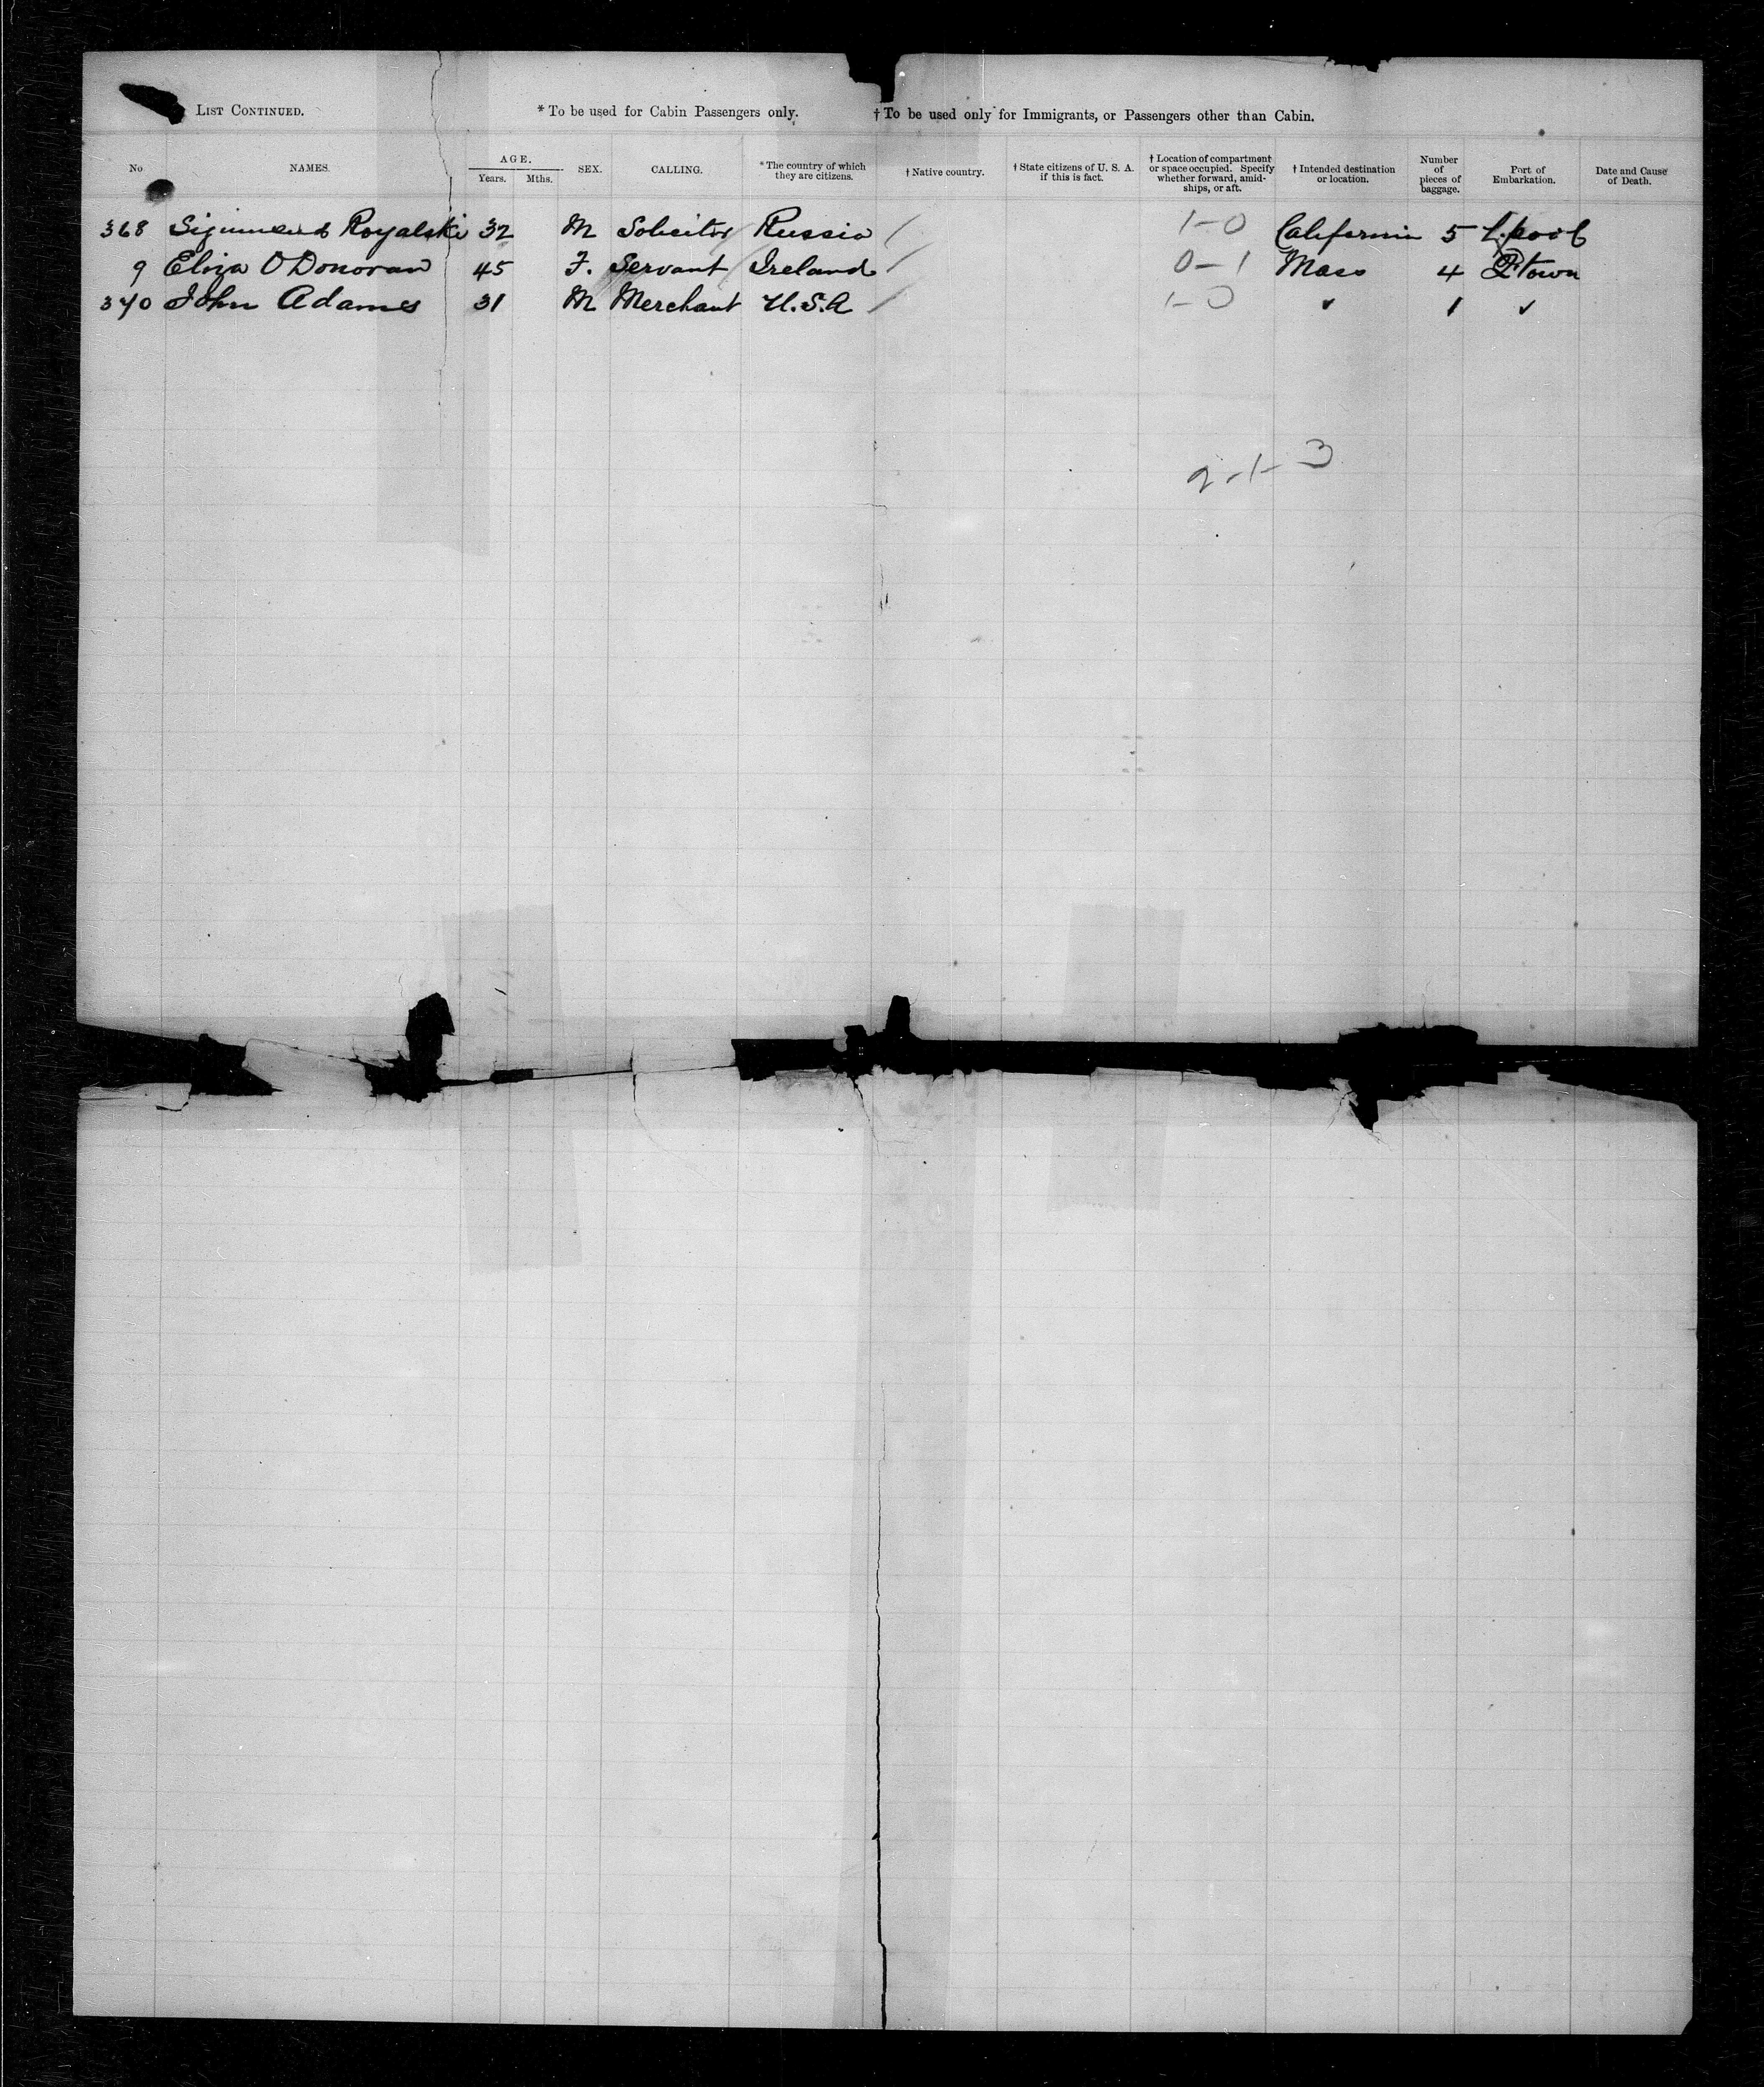 LIST CONTINUED. * To be used for Cabin Passengers only. † To be used only for Immigrants, or Passengers other than Cabin.
No. NAMES. AGE. Years. Mths. SEX. CALLING. * The country of which they are citizens. † Native country. † State citizens of U. S. A. if this is fact. † Location of compartment or space occupied. Specify whether forward, amidships, or aft. † Intended destination or location. Number of pieces of baggage. Port of Embarkation. Date and Cause of Death.
368 Sigismund Royalski 32 M Solicitor Russia / 1-0 California 5 L.pool
9 Eliza O'Donovan 45 F. Servant Ireland / 0-1 Mass 4 Qtown
370 John Adams 31 M Merchant U.S.A / 1-0 ✓ 1 ✓
2-1-3